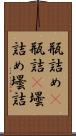 瓶詰め
瓶詰 壜
詰め壜詰